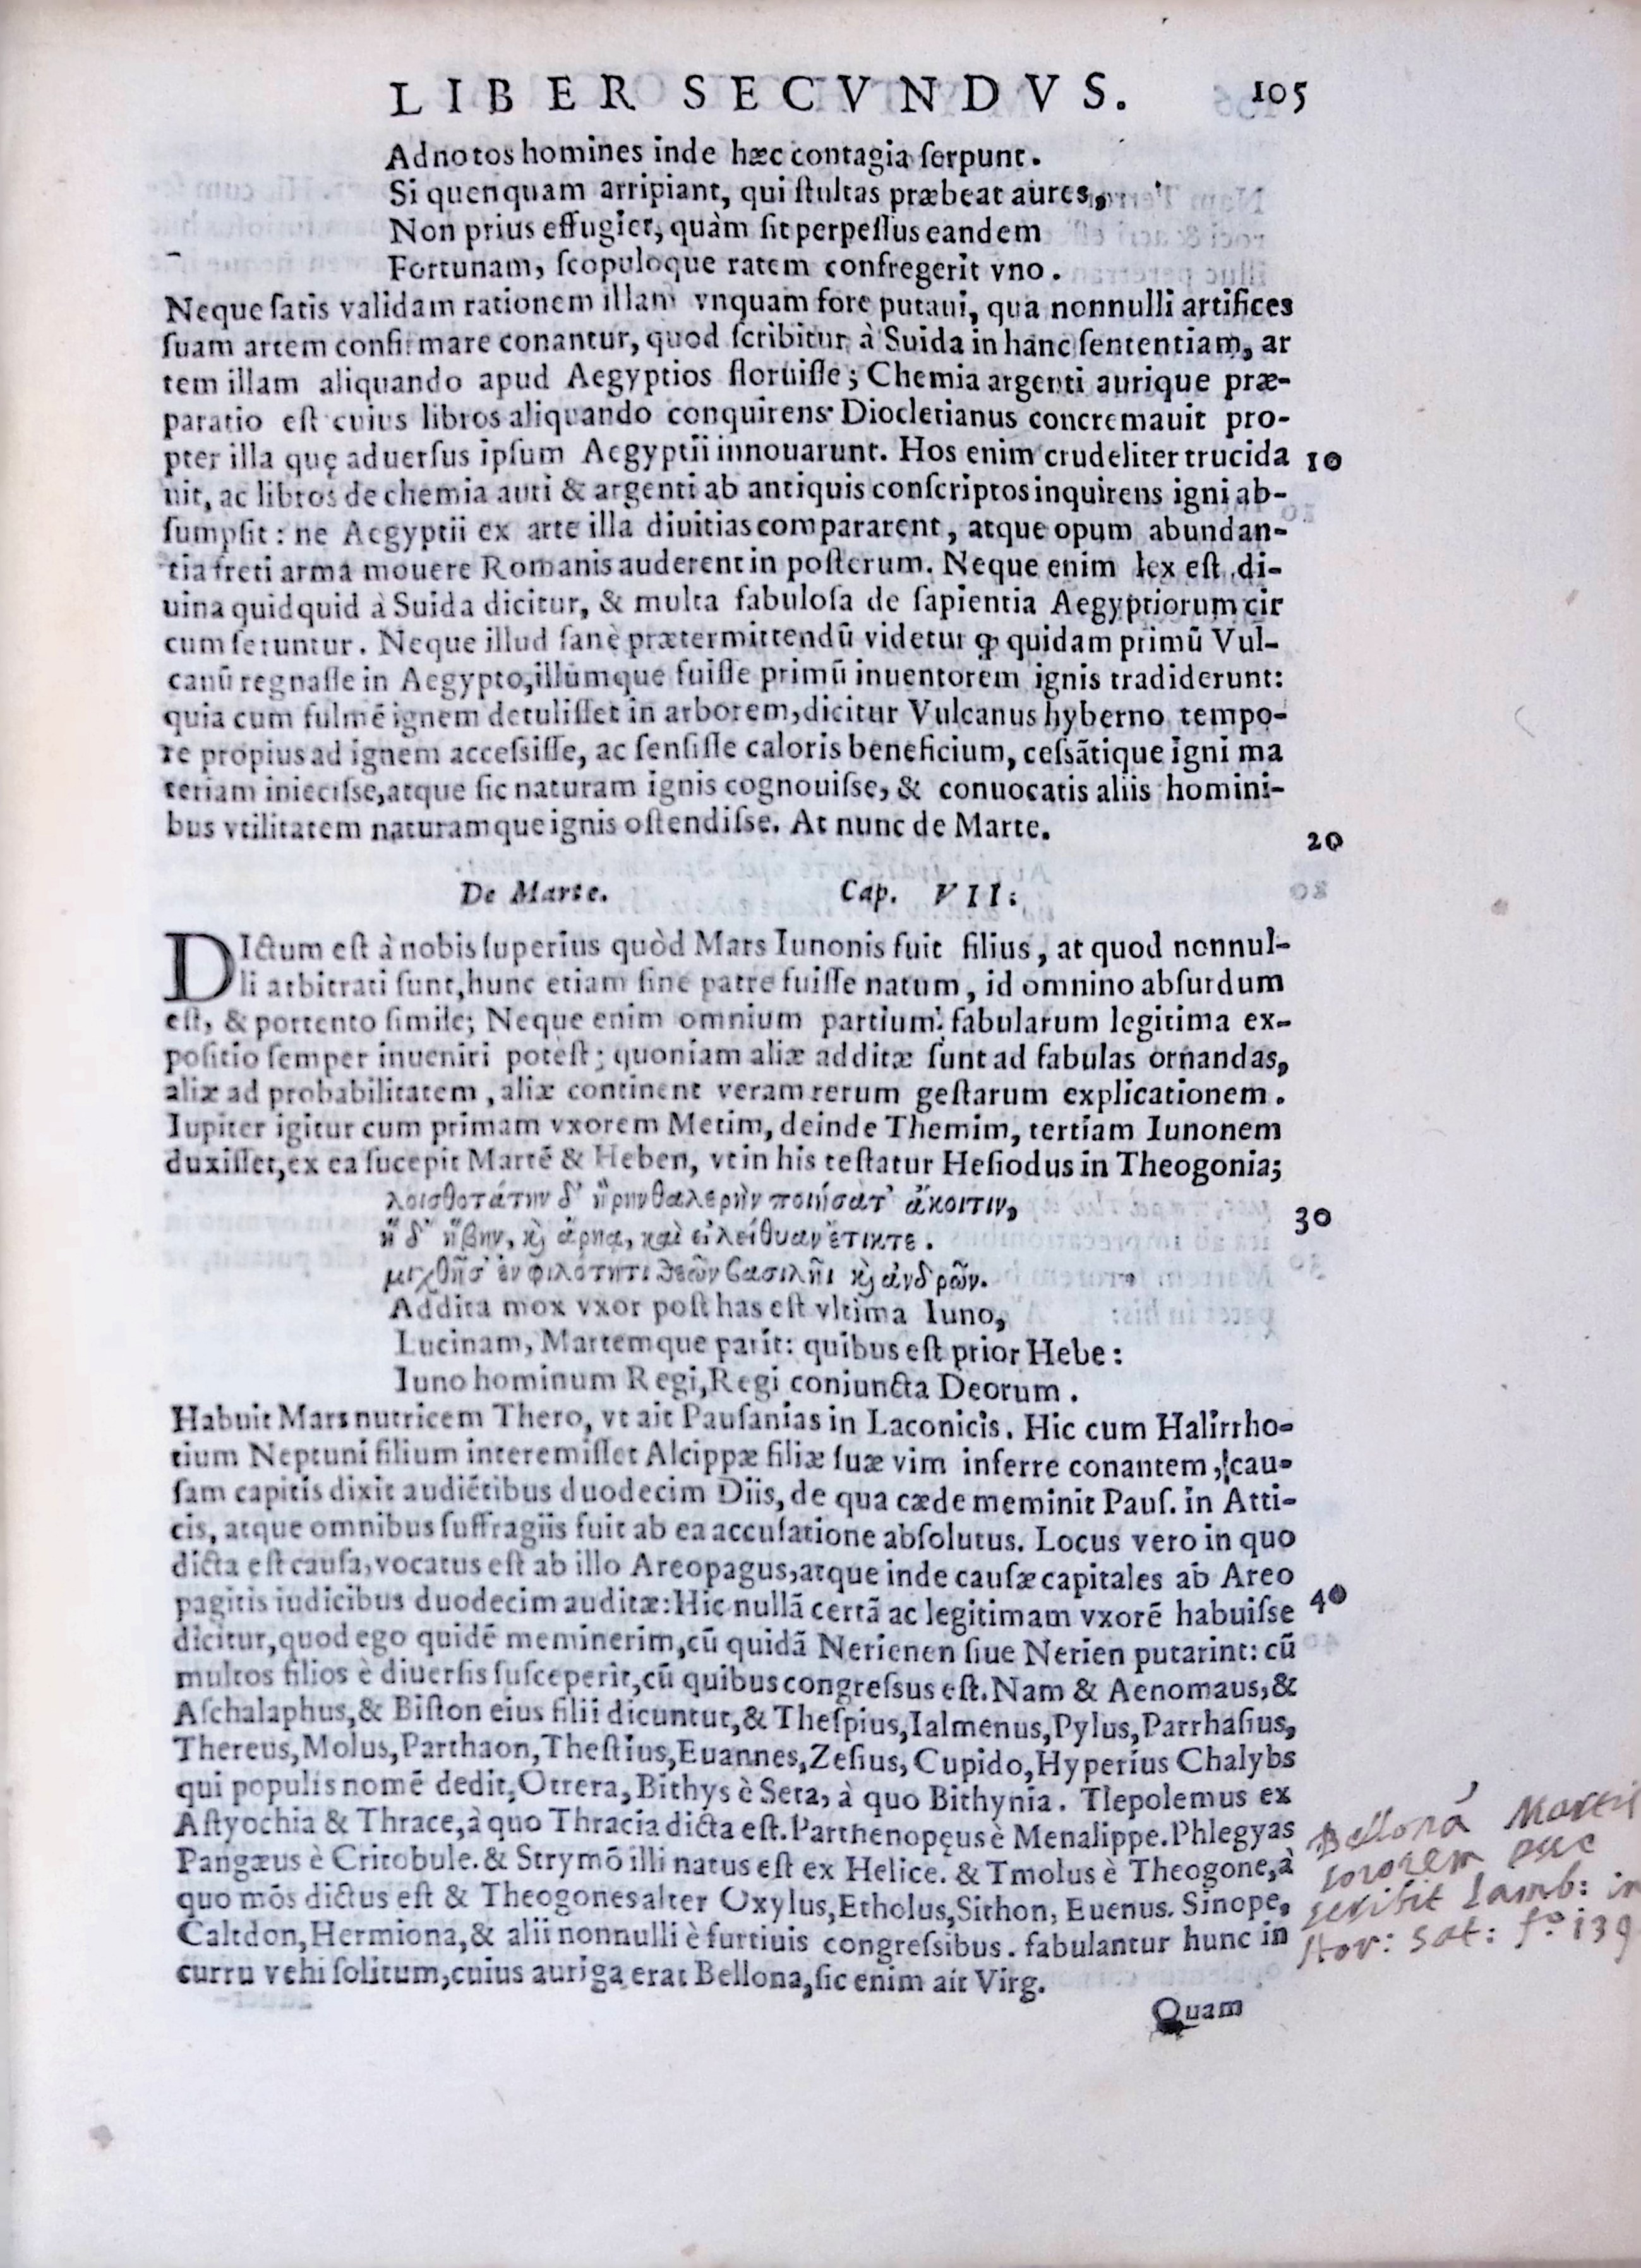 LIBER SECVNDVS. 105
Ad notos homines inde hæc contagia ſerpunt.
Si quenquam arripiant, qui ſtultas præbeat aures,
Non prius effugiet, quàm ſit perpeſſus eandem
Fortunam, ſcopuloque ratem confregerit vno.
Neque ſatis validam rationem illam vnquam fore putaui, qua nonnulli artifices
ſuam artem confirmare conantur, quod ſcribitur à Suida in hanc ſententiam, ar
tem illam aliquando apud Aegyptios floruiſſe; Chemia argenti aurique præ-
paratio eſt cuius libros aliquando conquirens Diocletianus concremauit pro-
pter illa quę aduerſus ipſum Aegyptii innouarunt. Hos enim crudeliter trucida 10
uit, ac libros de chemia auri & argenti ab antiquis conſcriptos inquirens igni ab-
ſumpſit: ne Aegyptii ex arte illa diuitias compararent, atque opum abundan-
tia freti arma mouere Romanis auderent in poſterum. Neque enim lex eſt di-
uina quidquid à Suida dicitur, & multa fabuloſa de ſapientia Aegyptiorum cir
cum feruntur. Neque illud ſanè prætermittendū videtur ꝙ quidam primū Vul-
canū regnaſſe in Aegypto, illumque fuiſſe primū inuentorem ignis tradiderunt:
quia cum fulmē ignem detuliſſet in arborem, dicitur Vulcanus hyberno tempo-
re propius ad ignem acceſsiſſe, ac ſenſiſſe caloris beneficium, ceſsātique igni ma
teriam inieciſse, atque ſic naturam ignis cognouiſse, & conuocatis aliis homini-
bus vtilitatem naturamque ignis oſtendiſse. At nunc de Marte.
20
De Marte. Cap. VII:
DIctum eſt à nobis ſuperius quòd Mars Iunonis fuit filius, at quod nonnul-
li arbitrati ſunt, hunc etiam ſine patre fuiſſe natum, id omnino abſurdum
eſt, & portento ſimile; Neque enim omnium partium fabularum legitima ex-
poſitio ſemper inueniri poteſt; quoniam aliæ additæ ſunt ad fabulas ornandas,
aliæ ad probabilitatem, aliæ continent veram rerum geſtarum explicationem.
Iupiter igitur cum primam vxorem Metim, deinde Themim, tertiam Iunonem
duxiſſet, ex ea ſucepit Martē & Heben, vt in his teſtatur Heſiodus in Theogonia;
λοισθοτάτην δ' ἥρην θαλερὴν ποιήσατ' ἄκοιτιν,
30
ἥ δ' ἥβην, ϗ ἄρηα, καὶ εἰλείθυαν ἔτικτε.
μιχθῆσ' ἐν φιλότητι θεῶν βασιλῆι ϗ ἀνδρῶν.
Addita mox vxor poſt has eſt vltima Iuno,
Lucinam, Martemque parit: quibus eſt prior Hebe:
Iuno hominum Regi, Regi coniuncta Deorum.
Habuit Mars nutricem Thero, vt ait Pauſanias in Laconicis. Hic cum Halirrho-
tium Neptuni filium interemiſſet Alcippæ filiæ ſuæ vim inferre conantem, cau-
ſam capitis dixit audiētibus duodecim Diis, de qua cæde meminit Pauſ. in Atti-
cis, atque omnibus ſuffragiis fuit ab ea accuſatione abſolutus. Locus vero in quo
dicta eſt cauſa, vocatus eſt ab illo Areopagus, atque inde cauſæ capitales ab Areo
pagitis iudicibus duodecim auditæ: Hic nullā certā ac legitimam vxorē habuiſse 40
dicitur, quod ego quidē meminerim, cū quidā Nerienen ſiue Nerien putarint: cū
multos filios è diuerſis ſuſceperit, cū quibus congreſsus eſt. Nam & Aenomaus, &
Aſchalaphus, & Biſton eius filii dicuntur, & Theſpius, Ialmenus, Pylus, Parrhaſius,
Thereus, Molus, Parthaon, Theſtius, Euannes, Zeſius, Cupido, Hyperius Chalybs
qui populis nomē dedit, Otrera, Bithys è Seta, à quo Bithynia. Tlepolemus ex
Aſtyochia & Thrace, à quo Thracia dicta eſt. Parthenopęus è Menalippe. Phlegyas
Pangæus è Critobule. & Strymō illi natus eſt ex Helice. & Tmolus è Theogone, à
quo mōs dictus eſt & Theogones alter Oxylus, Etholus, Sithon, Euenus. Sinope,
Caltdon, Hermiona, & alii nonnulli è furtiuis congreſsibus. fabulantur hunc in
curru vehi ſolitum, cuius auriga erat Bellona, ſic enim ait Virg.
Quam
Bellonā Martis
sororem esse
scribit Lamb: in
Hor: sat: f.o 139